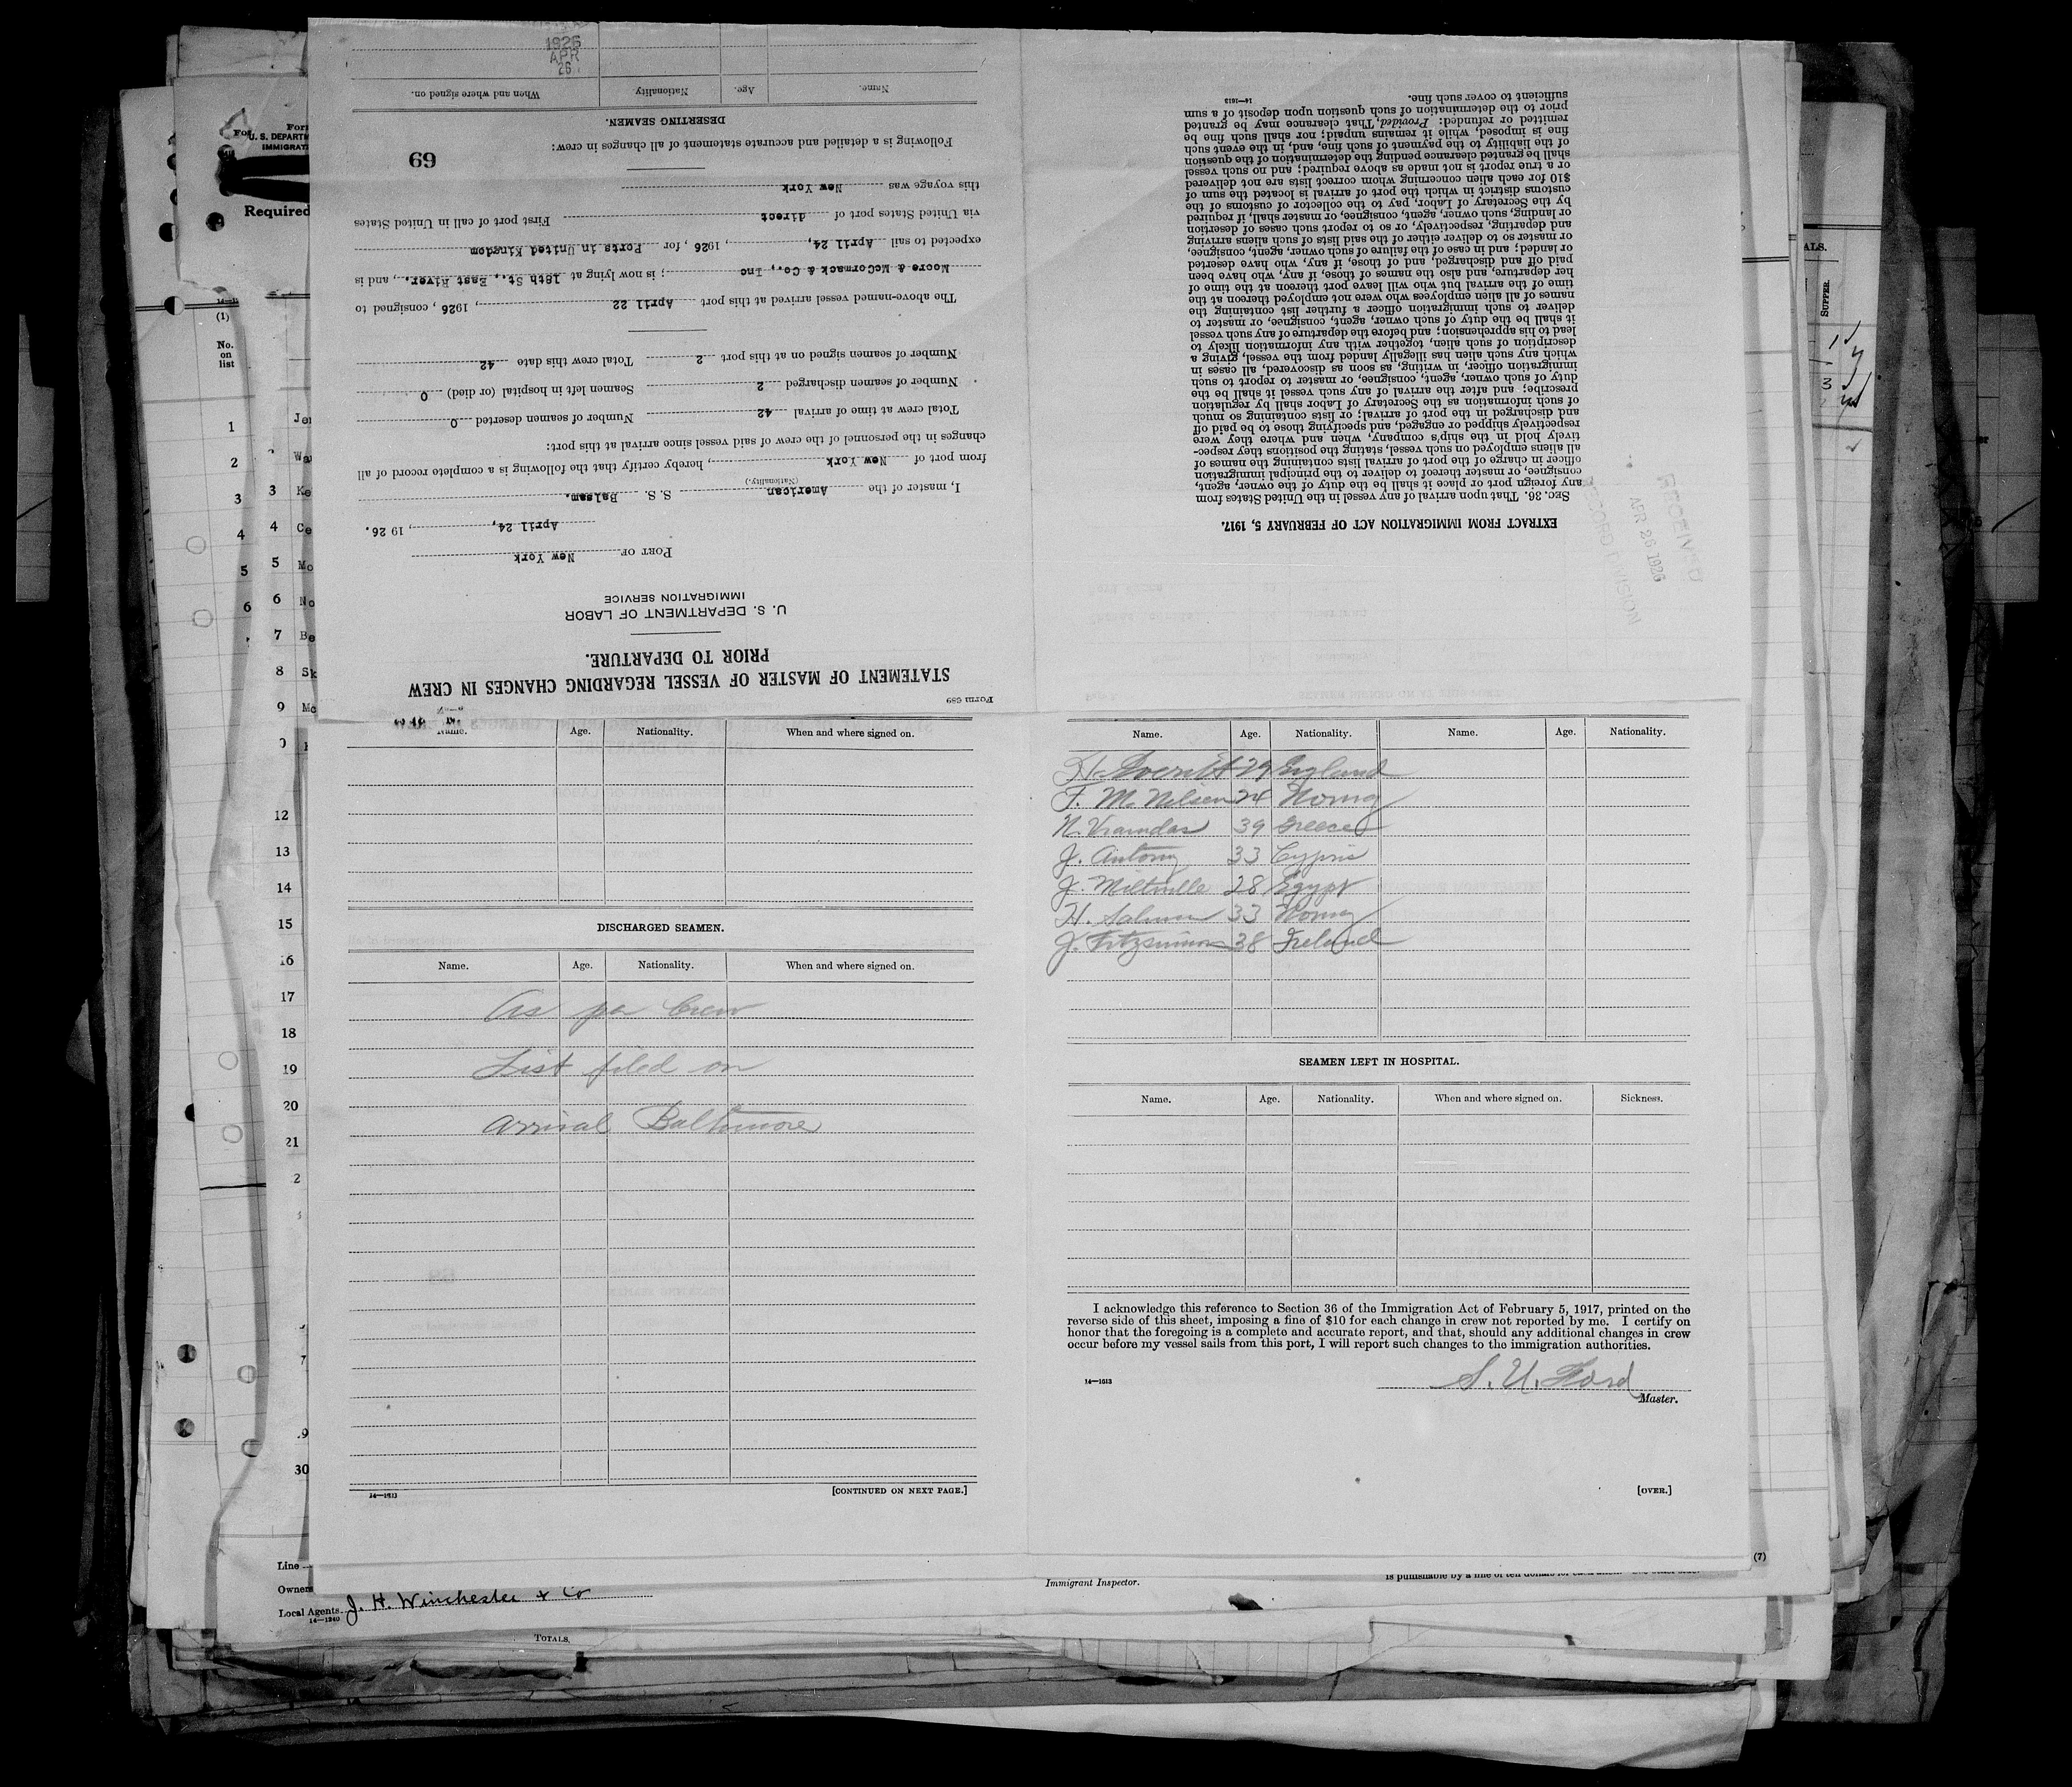 Form 689
STATEMENT OF MASTER OF VESSEL REGARDING CHANGES IN CREW
PRIOR TO DEPARTURE.
U. S. DEPARTMENT OF LABOR
IMMIGRATION SERVICE
PORT OF New York
April 24, , 1926.
I, master of the American S. S. Balsam,
(Nationality.)
from port of New York , hereby certify that the following is a complete record of all
changes in the personnel of the crew of said vessel since arrival at this port:
Total crew at time of arrival 42 Number of seamen deserted 0
Number of seamen discharged 2 Seamen left in hospital (or died) 0
Number of seamen signed on at this port 2 Total crew this date 42
The above-named vessel arrived at this port April 22 , 1926 , consigned to
Moore & McCormack & Co., Inc ; is now lying at 18th St., East River. , and is
expected to sail April 24, , 1926 , for Ports in United Kingdom
via United States port of direct First port of call in United States
this voyage was New York
69
Following is a detailed and accurate statement of all changes in crew:
DESERTING SEAMEN.
Name. Age. Nationality. When and where signed on.
1926
APR
26
EXTRACT FROM IMMIGRATION ACT OF FEBRUARY 5, 1917.
SEC. 36. That upon arrival of any vessel in the United States from
any foreign port or place it shall be the duty of the owner, agent,
consignee, or master thereof to deliver to the principal immigration
officer in charge of the port of arrival lists containing the names of
all aliens employed on such vessel, stating the positions they respec-
tively hold in the ship's company, when and where they were
respectively shipped or engaged, and specifying those to be paid off
and discharged in the port of arrival; or lists containing so much
of such information as the Secretary of Labor shall by regulation
prescribe; and after the arrival of any such vessel it shall be the
duty of such owner, agent, consignee, or master to report to such
immigration officer, in writing, as soon as discovered, all cases in
which any such alien has illegally landed from the vessel, giving a
description of such alien, together with any information likely to
lead to his apprehension; and before the departure of any such vessel
it shall be the duty of such owner, agent, consignee, or master to
deliver to such immigration officer a further list containing the
names of all alien employees who were not employed thereon at the
time of the arrival but who will leave port thereon at the time of
her departure, and also the names of those, if any, who have been
paid off and discharged, and of those, if any, who have deserted
or landed; and in case of the failure of such owner, agent, consignee,
or master so to deliver either of the said lists of such aliens arriving
and departing, respectively, or so to report such cases of desertion
or landing, such owner, agent, consignee, or master shall, if required
by the Secretary of Labor, pay to the collector of customs of the
customs district in which the port of arrival is located the sum of
$10 for each alien concerning whom correct lists are not delivered
or a true report is not made as above required; and no such vessel
shall be granted clearance pending the determination of the question
of the liability to the payment of such fine, and, in the event such
fine is imposed, while it remains unpaid; nor shall such fine be
remitted or refunded: Provided, That clearance may be granted
prior to the determination of such question upon deposit of a sum
sufficient to cover such fine.
14—1613
RECEIVED
APR 26 1926
RECORD DIVISION
Name. Age. Nationality. When and where signed on.
DISCHARGED SEAMEN.
Name. Age. Nationality. When and where signed on.
As per Crew
List filed on
arrival Baltimore
14—1613
[CONTINUED ON NEXT PAGE.]
Name. Age. Nationality. Name. Age. Nationality.
H. 29 England
T. M. Nilsen 24 Norway
N. 39 Greece
J. Antony 33 Cyprus
J. 28 Egypt
H. 33 Norway
J. Fitzsimmons 38 Ireland
SEAMEN LEFT IN HOSPITAL.
Name. Age. Nationality. When and where signed on. Sickness.
I acknowledge this reference to Section 36 of the Immigration Act of February 5, 1917, printed on the
reverse side of this sheet, imposing a fine of $10 for each change in crew not reported by me. I certify on
honor that the foregoing is a complete and accurate report, and that, should any additional changes in crew
occur before my vessel sails from this port, I will report such changes to the immigration authorities.
14—1613
S. U. Ford
Master.
[OVER.]
(7)
Line
Owners
Local Agents J. H. Winchester & Co
14—1240
Immigrant Inspector.
TOTALS.
U. S. DEPARTM
IMMIGRATI
Required
(1)
No.
on
list
SUPPER.